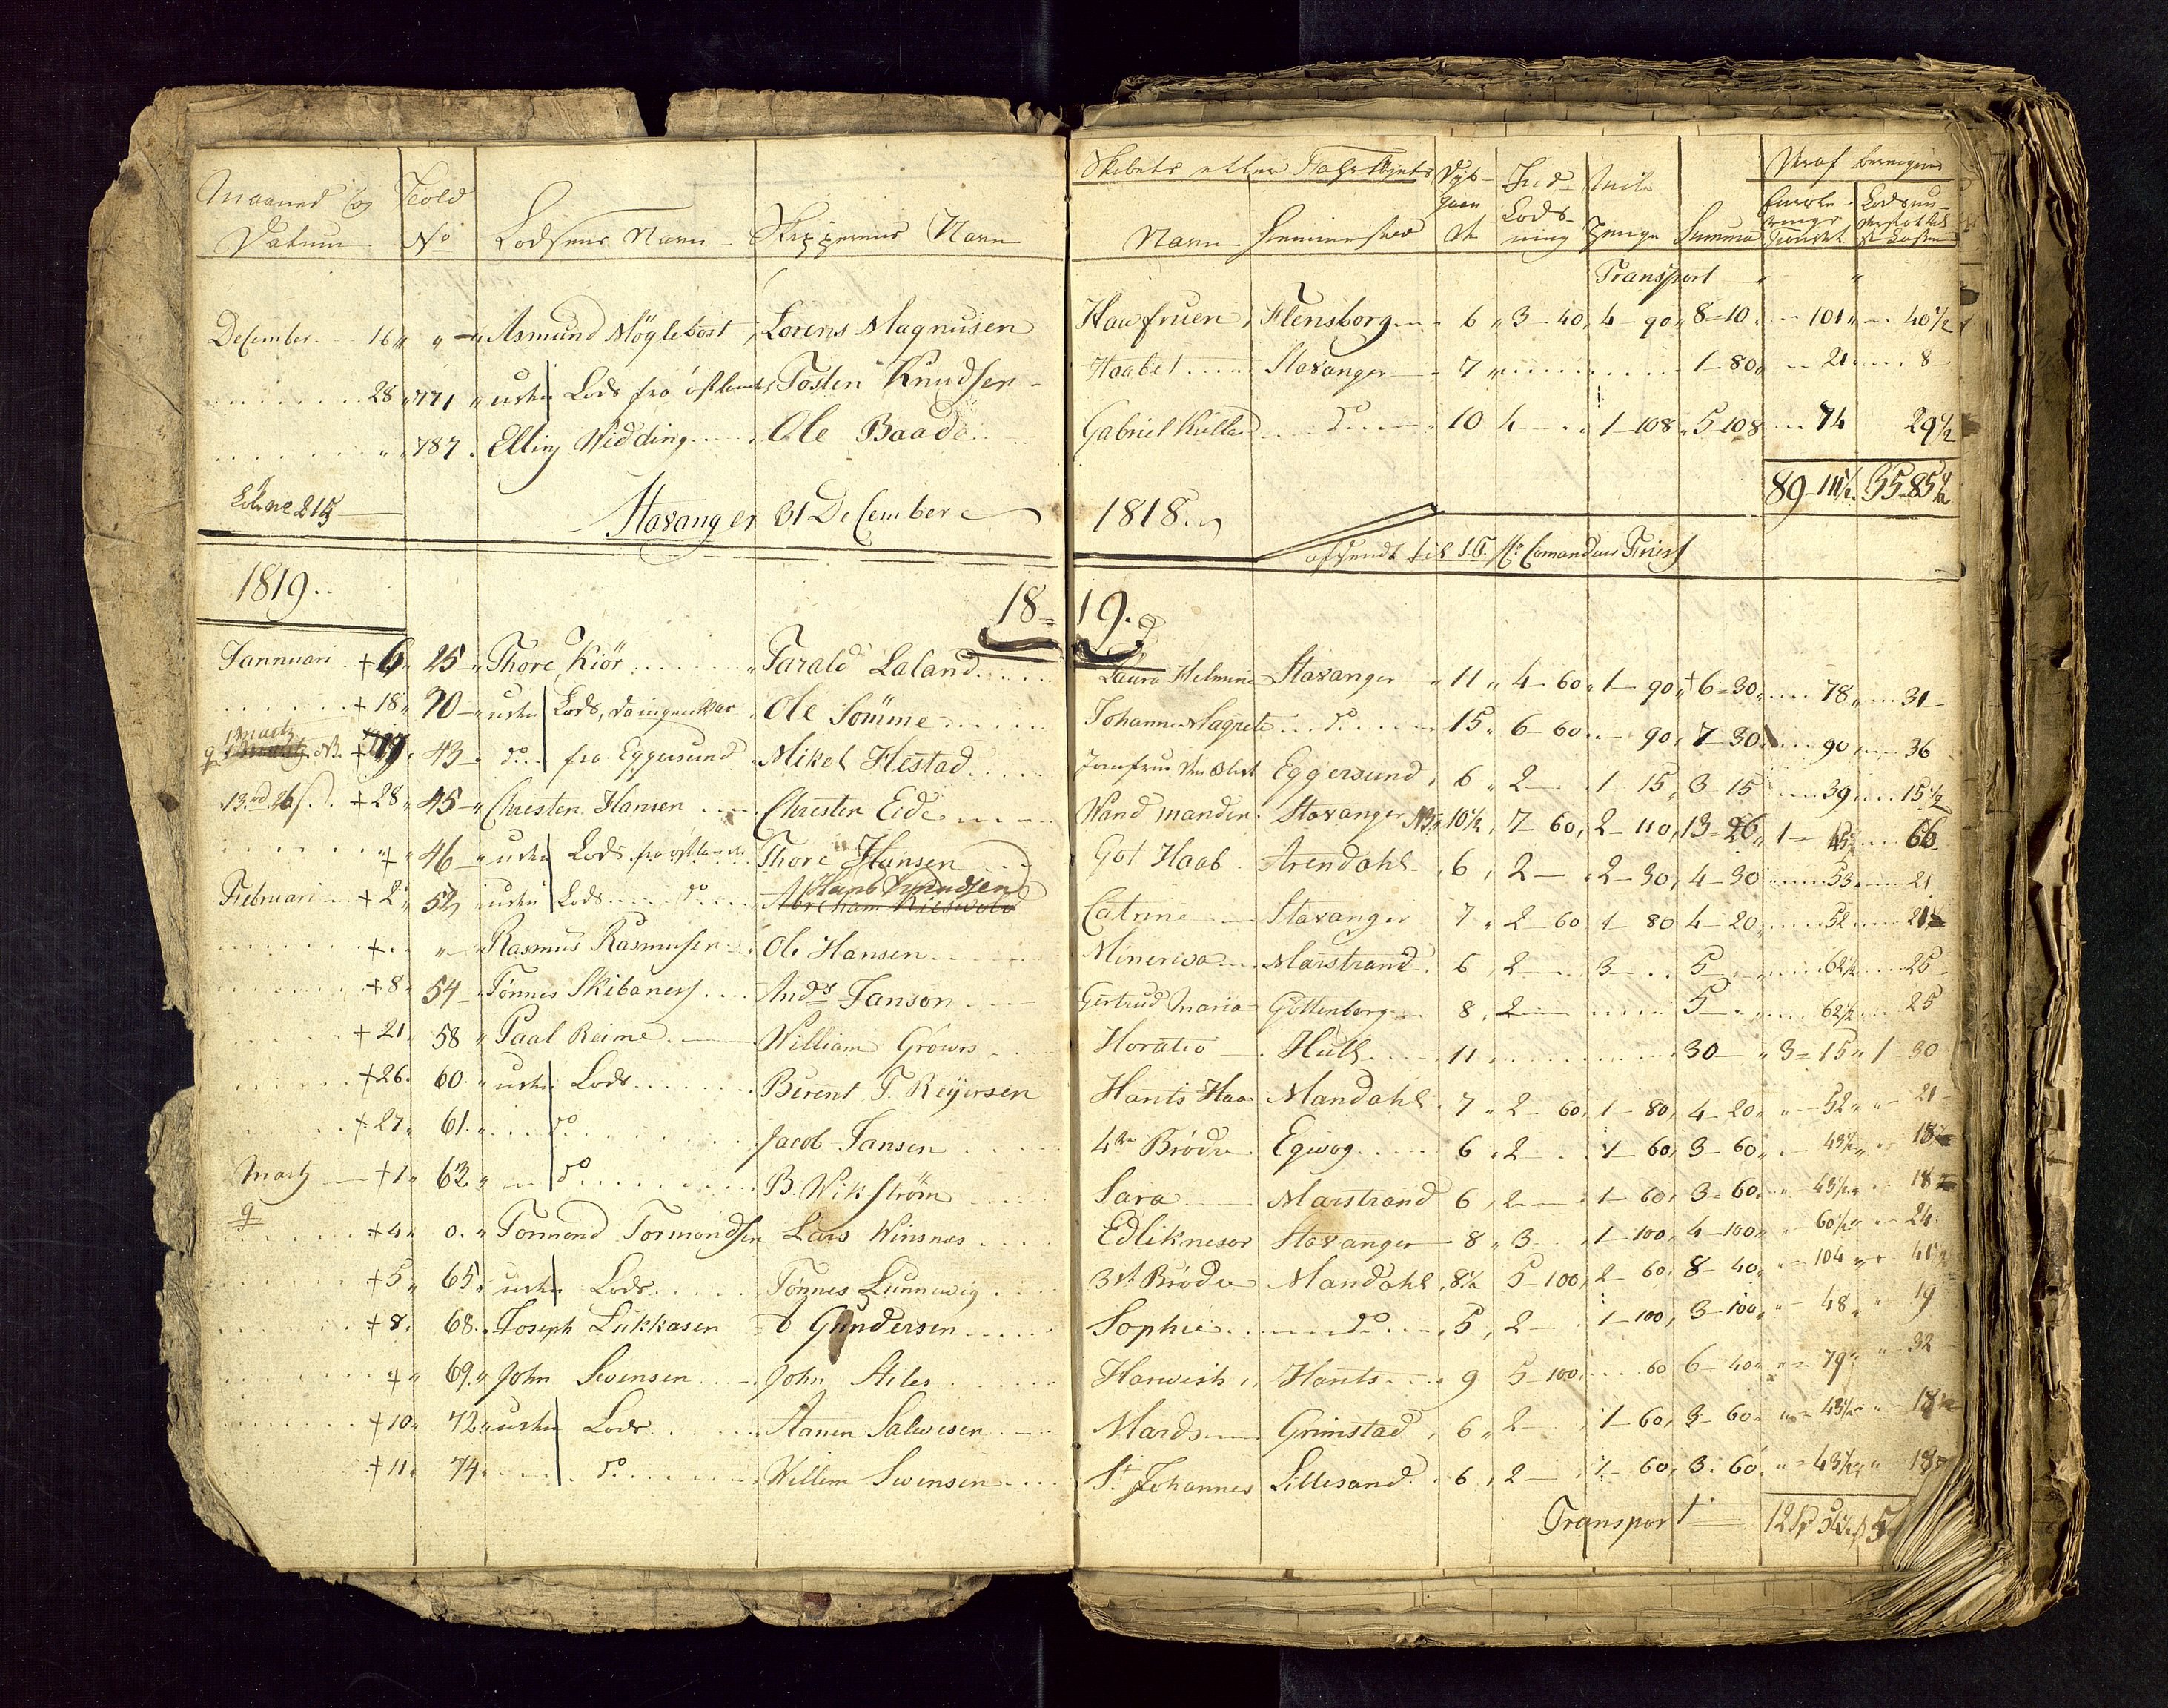 Maaned og Datum Told No Lodsens Navn Skipperens Navn Skibets eller Fartøiets Navn Hiemsted Dyb- gaaende Ind- Lods- ning Mile Penge Summa Heraf beregnes
Transport " "
December 16 " " Asmund Möglebost Lorens Magnusen Hawfruen Flensborg 6 3-40 4-90 8-10 101 40½
28 771 uden Lods fra östlandet Tosten Knudsen Haabet Stavanger 7 1-80 21 8
" 787 Elling Widding Ole Baade Gabriel Kielland do 10 4 1-108 5-108 74 29½
89-111½ 35-85½
Stavanger 31 December 1818
afsendt til S.T. Hr Comandeur Friis
1819 18=19
Jannuari +6 25 Thore Kiör Tarald Laland Laura Helmine Stavanger 11 4-60 1-90 +6-30 78 31
+18 20 uden Lods, da ingen war Ole Sömme Johanna Magrete do 15 6-60 90 7-30 90 36
+19 43 do fra Eggersund Mikel Hestad Jomfrue Eggersund 6 2 1 15 3-15 39 15½
+28 45 Chresten Hansen Chresten Eide Wand manden Stavanger 10½ 7-60 2-110 13-26 1= 66
+ 46 uden Lods fra östlandet Thore Hansen Got Haab Arendahl 6 2 2-30 4-30 53 21
Februari +2 52 uden Lods do Hans Knudsen Catrine Stavanger 7 2 60 1 80 4-20 52 21
+ " Rasmus Rasmusen Ole Hansen Minerva Marstrand 6 2 3 5 62½ 25
+8 54 Tönnes Skibanes Ands Janson Gertrud Maria Gottenborg 8 2 5 62½ 25
+21 58 Paal Reime William Grows Horatio Hull 11 30 3=15 1 30
+26 60 uden Lods Berent T. Reijersen Hants Haa Mandahl 7 2 60 1-80 4-20 52 21
+27 61 do Jacob Jansen 4re Brødre Egwog 6 2 1 60 3-60 43½ 18
Marts +1 62 do B. Wikström Sara Marstrand 6 2 1-60 3-60 43½ 18
+4 0 Tormond Tormondsen Lars Winsnes Edliknesor Stavanger 8 3 1-100 4-100 60½ 24
+5 65 uden Lods Tönnes Lunnewig 3de Brødre Mandahl 8½ 5-100 2-60 8-40 104 41½
+8 68 Joseph Lukkasen O Gundersen Sophie do 5 2 1-100 3-100 48 19
+ 69 John Swensen John Stiles Harwish Hants 9 5-100 60 6-40 79 32
+10 72 uden Lods Aanen Salwesen Mards Grimstad 6 2 1-60 3-60 43½ 18
+11 74 do Willem Swensen St Johannes Lillesand 6 2 60 3-60 43½ 18
Transport